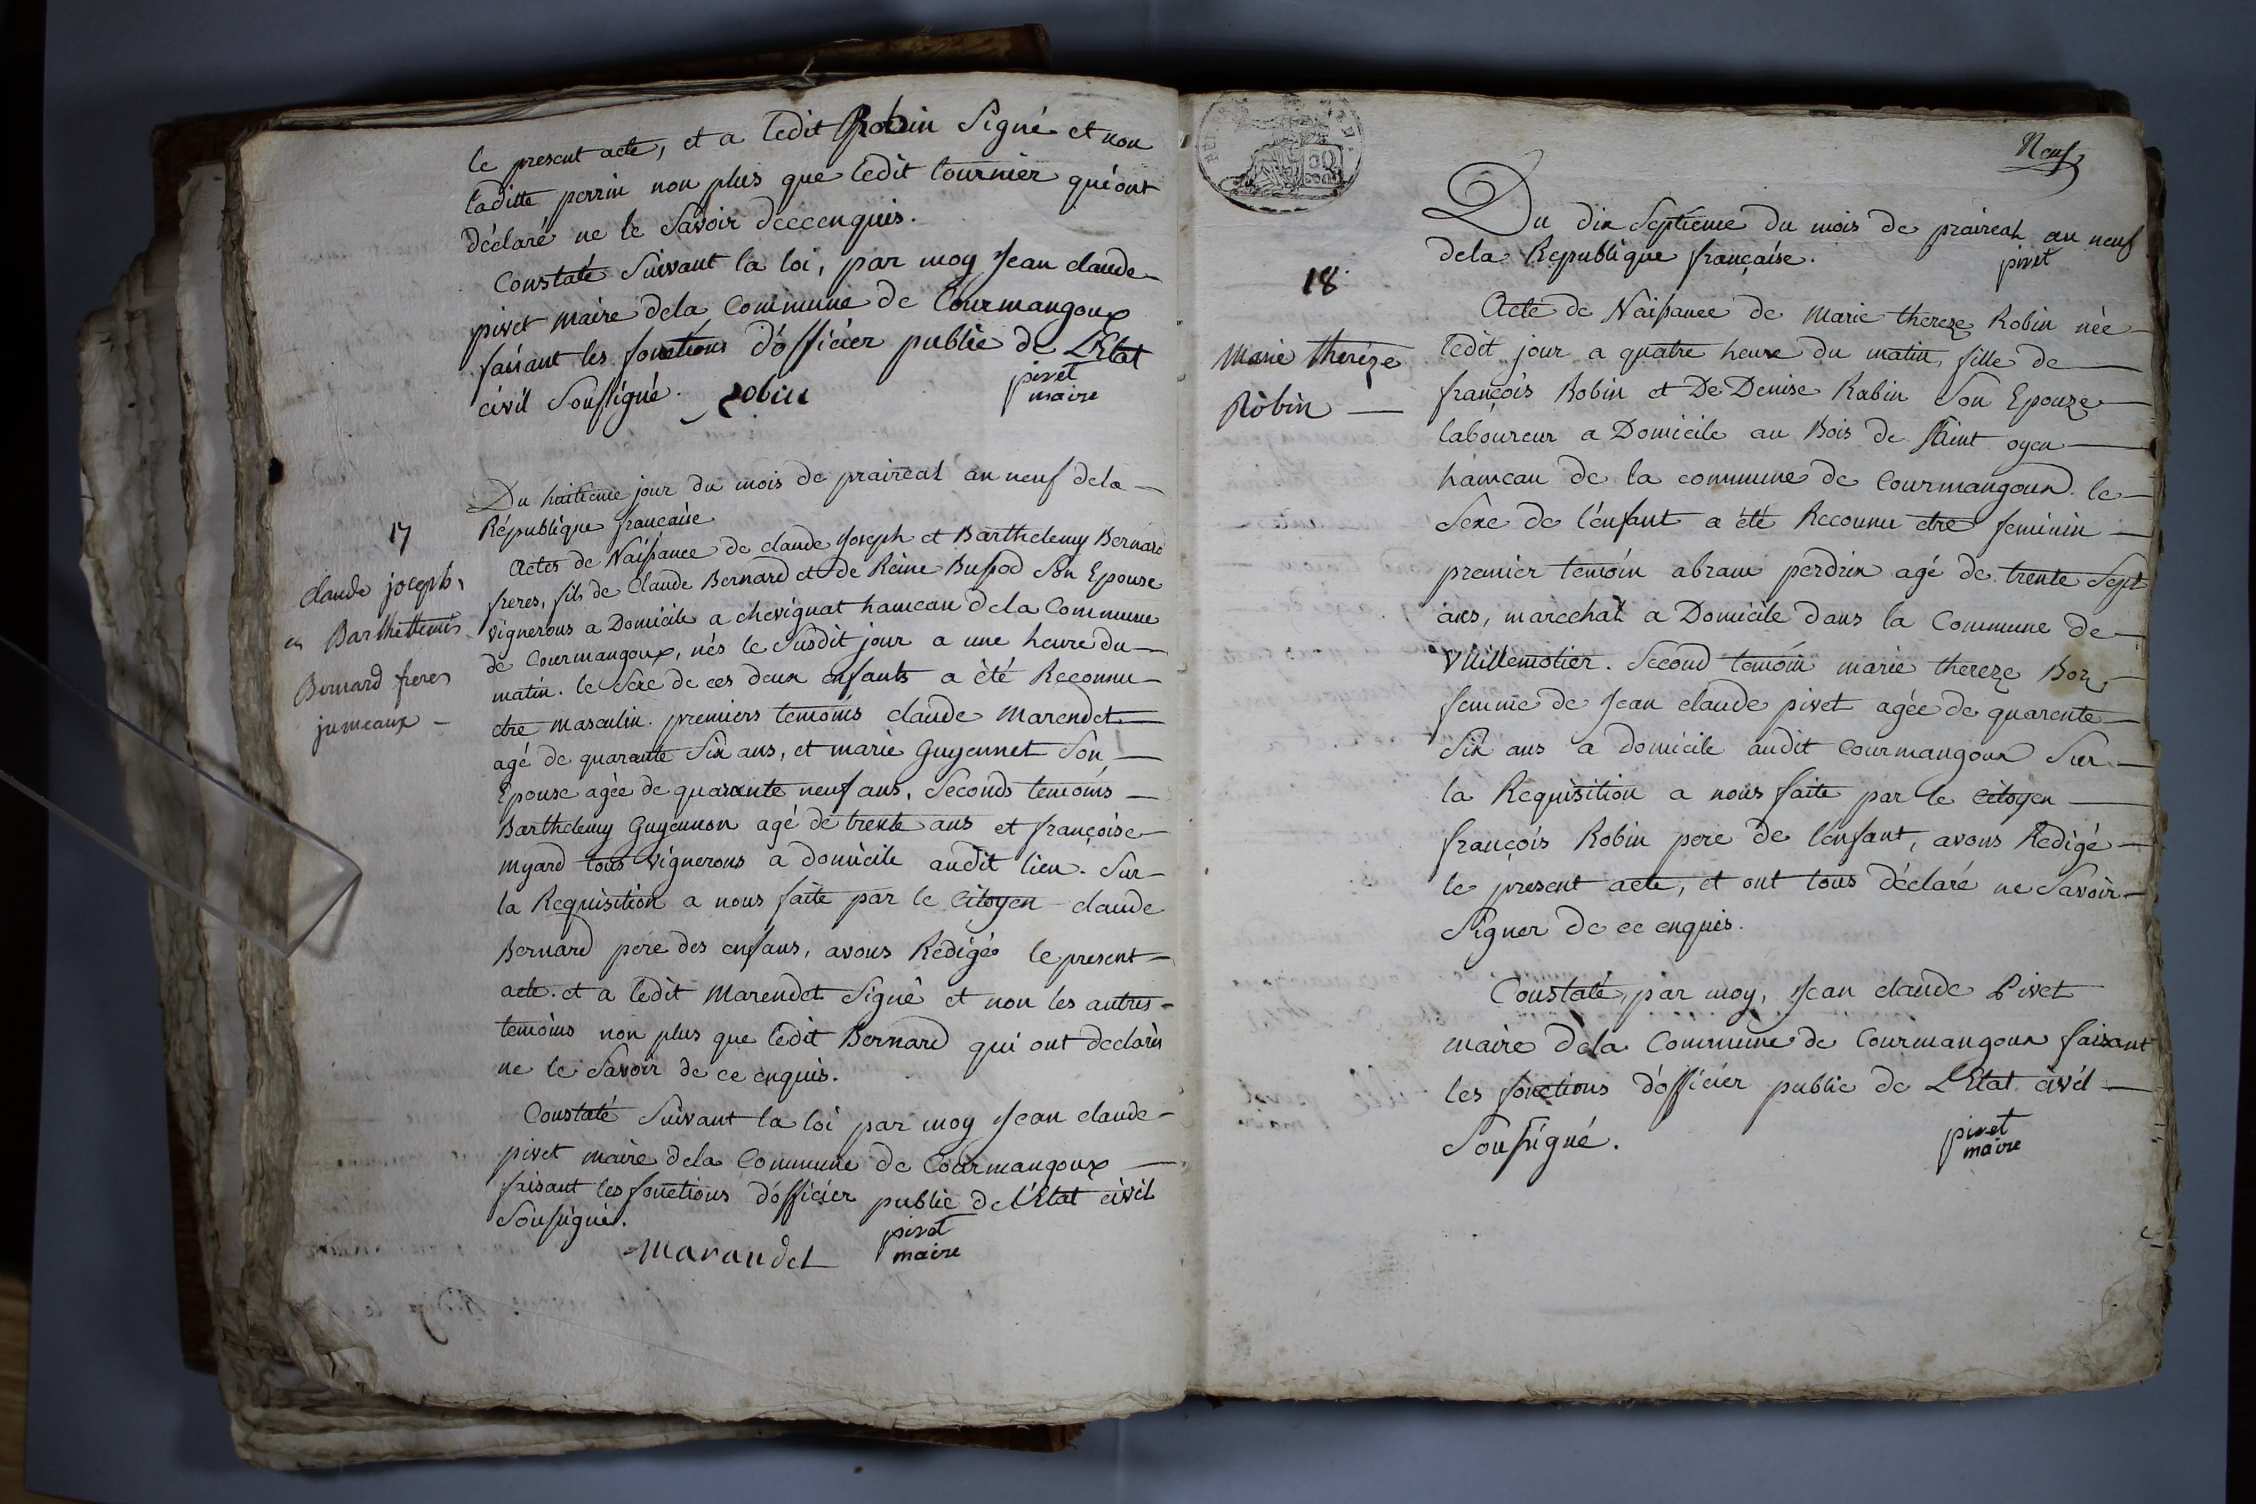 le present acte, et a ledit Robin Signé et non
laditte perrin non plus que ledit tournier qui ont
déclaré ne le Savoir dececenquis.
Constaté Suivant la loi, par moy Jean claude
pivet maire dela Commune de Courmangoux
faisant les fonctions d'officier public de L'Etat
civil Soussigné. robin
pivet
maire
17
claude joceph,
Barthellemi
Bernard freres
jumeaux -
Du huitieme jour du mois de praireal an neuf dela
République francaise
Actes de Naissance de claude Joseph et Barthelemy Bernard
freres, fils de Claude Bernard et de Reine Bussod Son Epouse
vignerons a Domicile a chevignat hameau dela Commune
de Courmangoux, nés le Susdit jour a une heure du
matin. le Sexe de ces deux enfants a été Reconnu
etre masculin. premiers temoins claude Marendet
agé de quarante Six ans, et marie Guyennet Son
Epouse agée de quarante neuf ans, Seconds temoins
Barthelemy Guyennon agé de trente ans et françoise
myard tous vignerons a domicile audit lieu. Sur
la Requisition a nous faite par le Citoyen claude
Bernard pere des enfans, avons Redigé le present
acte. et a ledit Marendet Signé et non les autres
temoins non plus que ledit Bernard qui ont declarés
ne le Savoir de ce enquis.
Constaté Suivant la loi par moy Jean claude
pivet maire dela Commune de Courmangoux
faisant les fonctions d'officier public de L'Etat civil
Soussigné.
marandet
pivet
maire
Neuf
Du dix Septieme du mois de praireal an neuf
dela Republique française.
pivet
18
marie thereze
Robin
Acte de Naissance de Marie thereze Robin née
ledit jour a quatre heure du matin, fille de
françois Robin et De Denise Rabin Son Epouze
laboureur a Domicile au Bois de Saint oyen
hameau de la commune de Courmangoux. le
Sexe de l'enfant a été Reconnu etre feminin
premier temoin abram perdrix agé de trente Sept
ans, marechal a Domicile dans la Commune de
Villemotier. Second temoin marie thereze Boz
femme de Jean claude pivet agée de quarente
Six ans a domicile audit Courmangoux Sur
la Requisition a nous faite par le Citoyen
françois Robin pere de l'enfant, avons Redigé
le present acte, et ont tous déclaré ne Savoir
Signer de ce enquis.
Constaté, par moy, Jean claude Pivet
maire dela Commune de Courmangoux faisant
les fonctions d'officier public de L'Etat civil
Soussigné.
pivet
maire